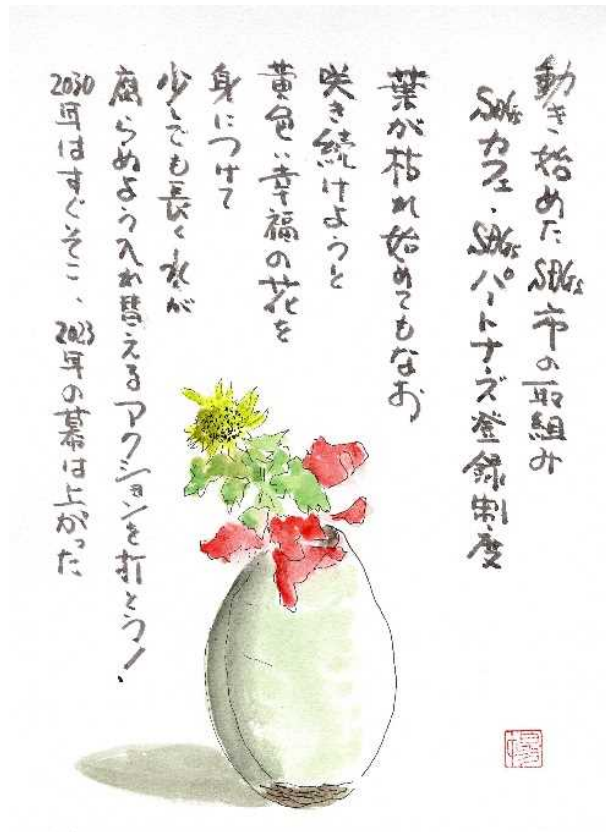 動き始めたSDGs市の取組み
SDGsカフェ・SDGsパートナーズ登録制度
葉が枯れ始めてもなお
咲き続けようと
黄色い幸福の花を
身につけて
少しでも長く水が
腐らぬよう入れ替えるアクションを打とう!
2030年はすぐそこ、2023年の幕は上がった